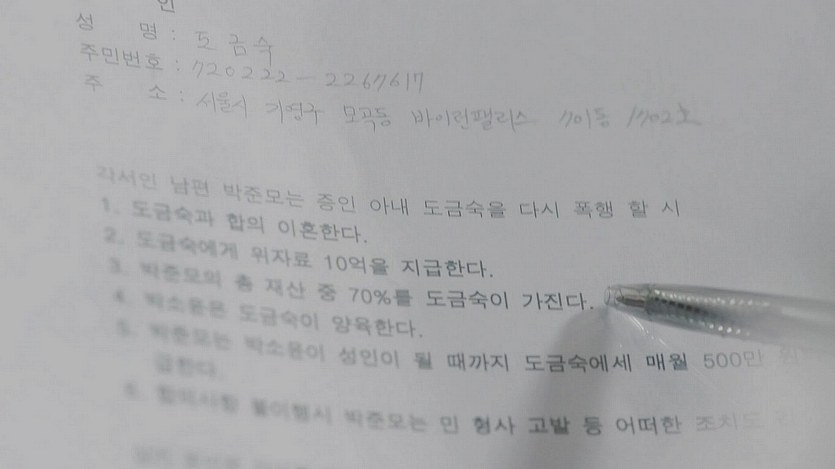 인
성 명 : 도 금 숙
주민번호 : 720222-2267617
주 소 : 서울시 기영구 모곡동 바이린팰리스 701동 1702호
각서인 남편 박준모는 증인 아내 도금숙을 다시 폭행 할 시
1. 도금숙과 합의 이혼한다.
2. 도금숙에게 위자료 10억을 지급한다.
3. 박준모의 총 재산 중 70%를 도금숙이 가진다.
4. 박소윤은 도금숙이 양육한다.
5. 박준모는 박소윤이 성인이 될 때까지 도금숙에세 매월 500만 원
급한다.
6. 합의사항 불이행시 박준모는 민 형사 고발 등 어떠한 조치도